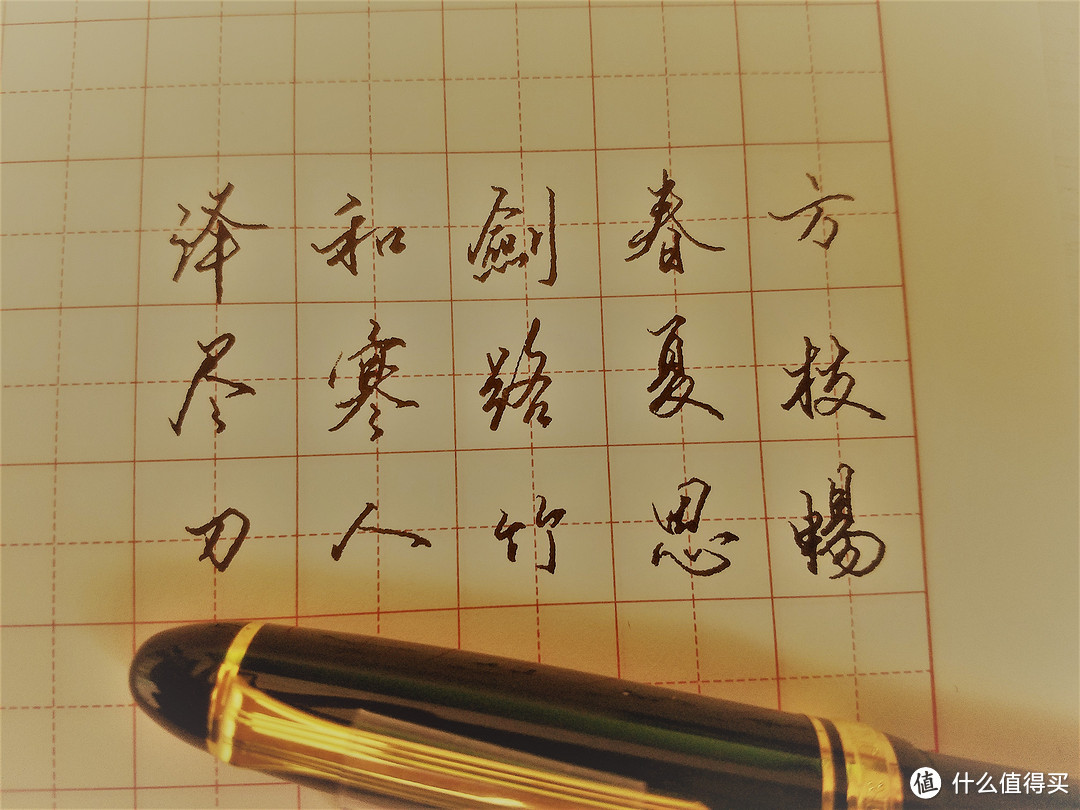 方枝暢
春夏思
劍路竹
和寒人
译尽刀
值 什么值得买